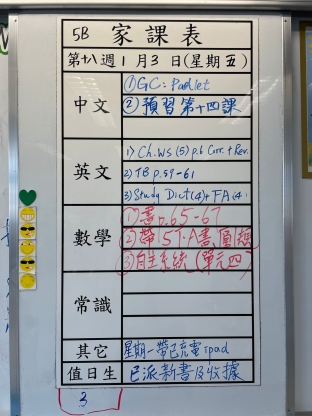 5B 家課表
第十八週 1月3日(星期五)
中文
①GC: Padlet
②預習第十四課
英文
1) Ch.WS (5) p.6 Corr. + Rev.
2) TB p.59-61
3) Study Dict(4) + FA (4)
數學
①書p.65-67
②帶5下A書,
③自主系統(單元四)
常識
其它
星期一帶已充電ipad
值日生
已派新書及收據
3